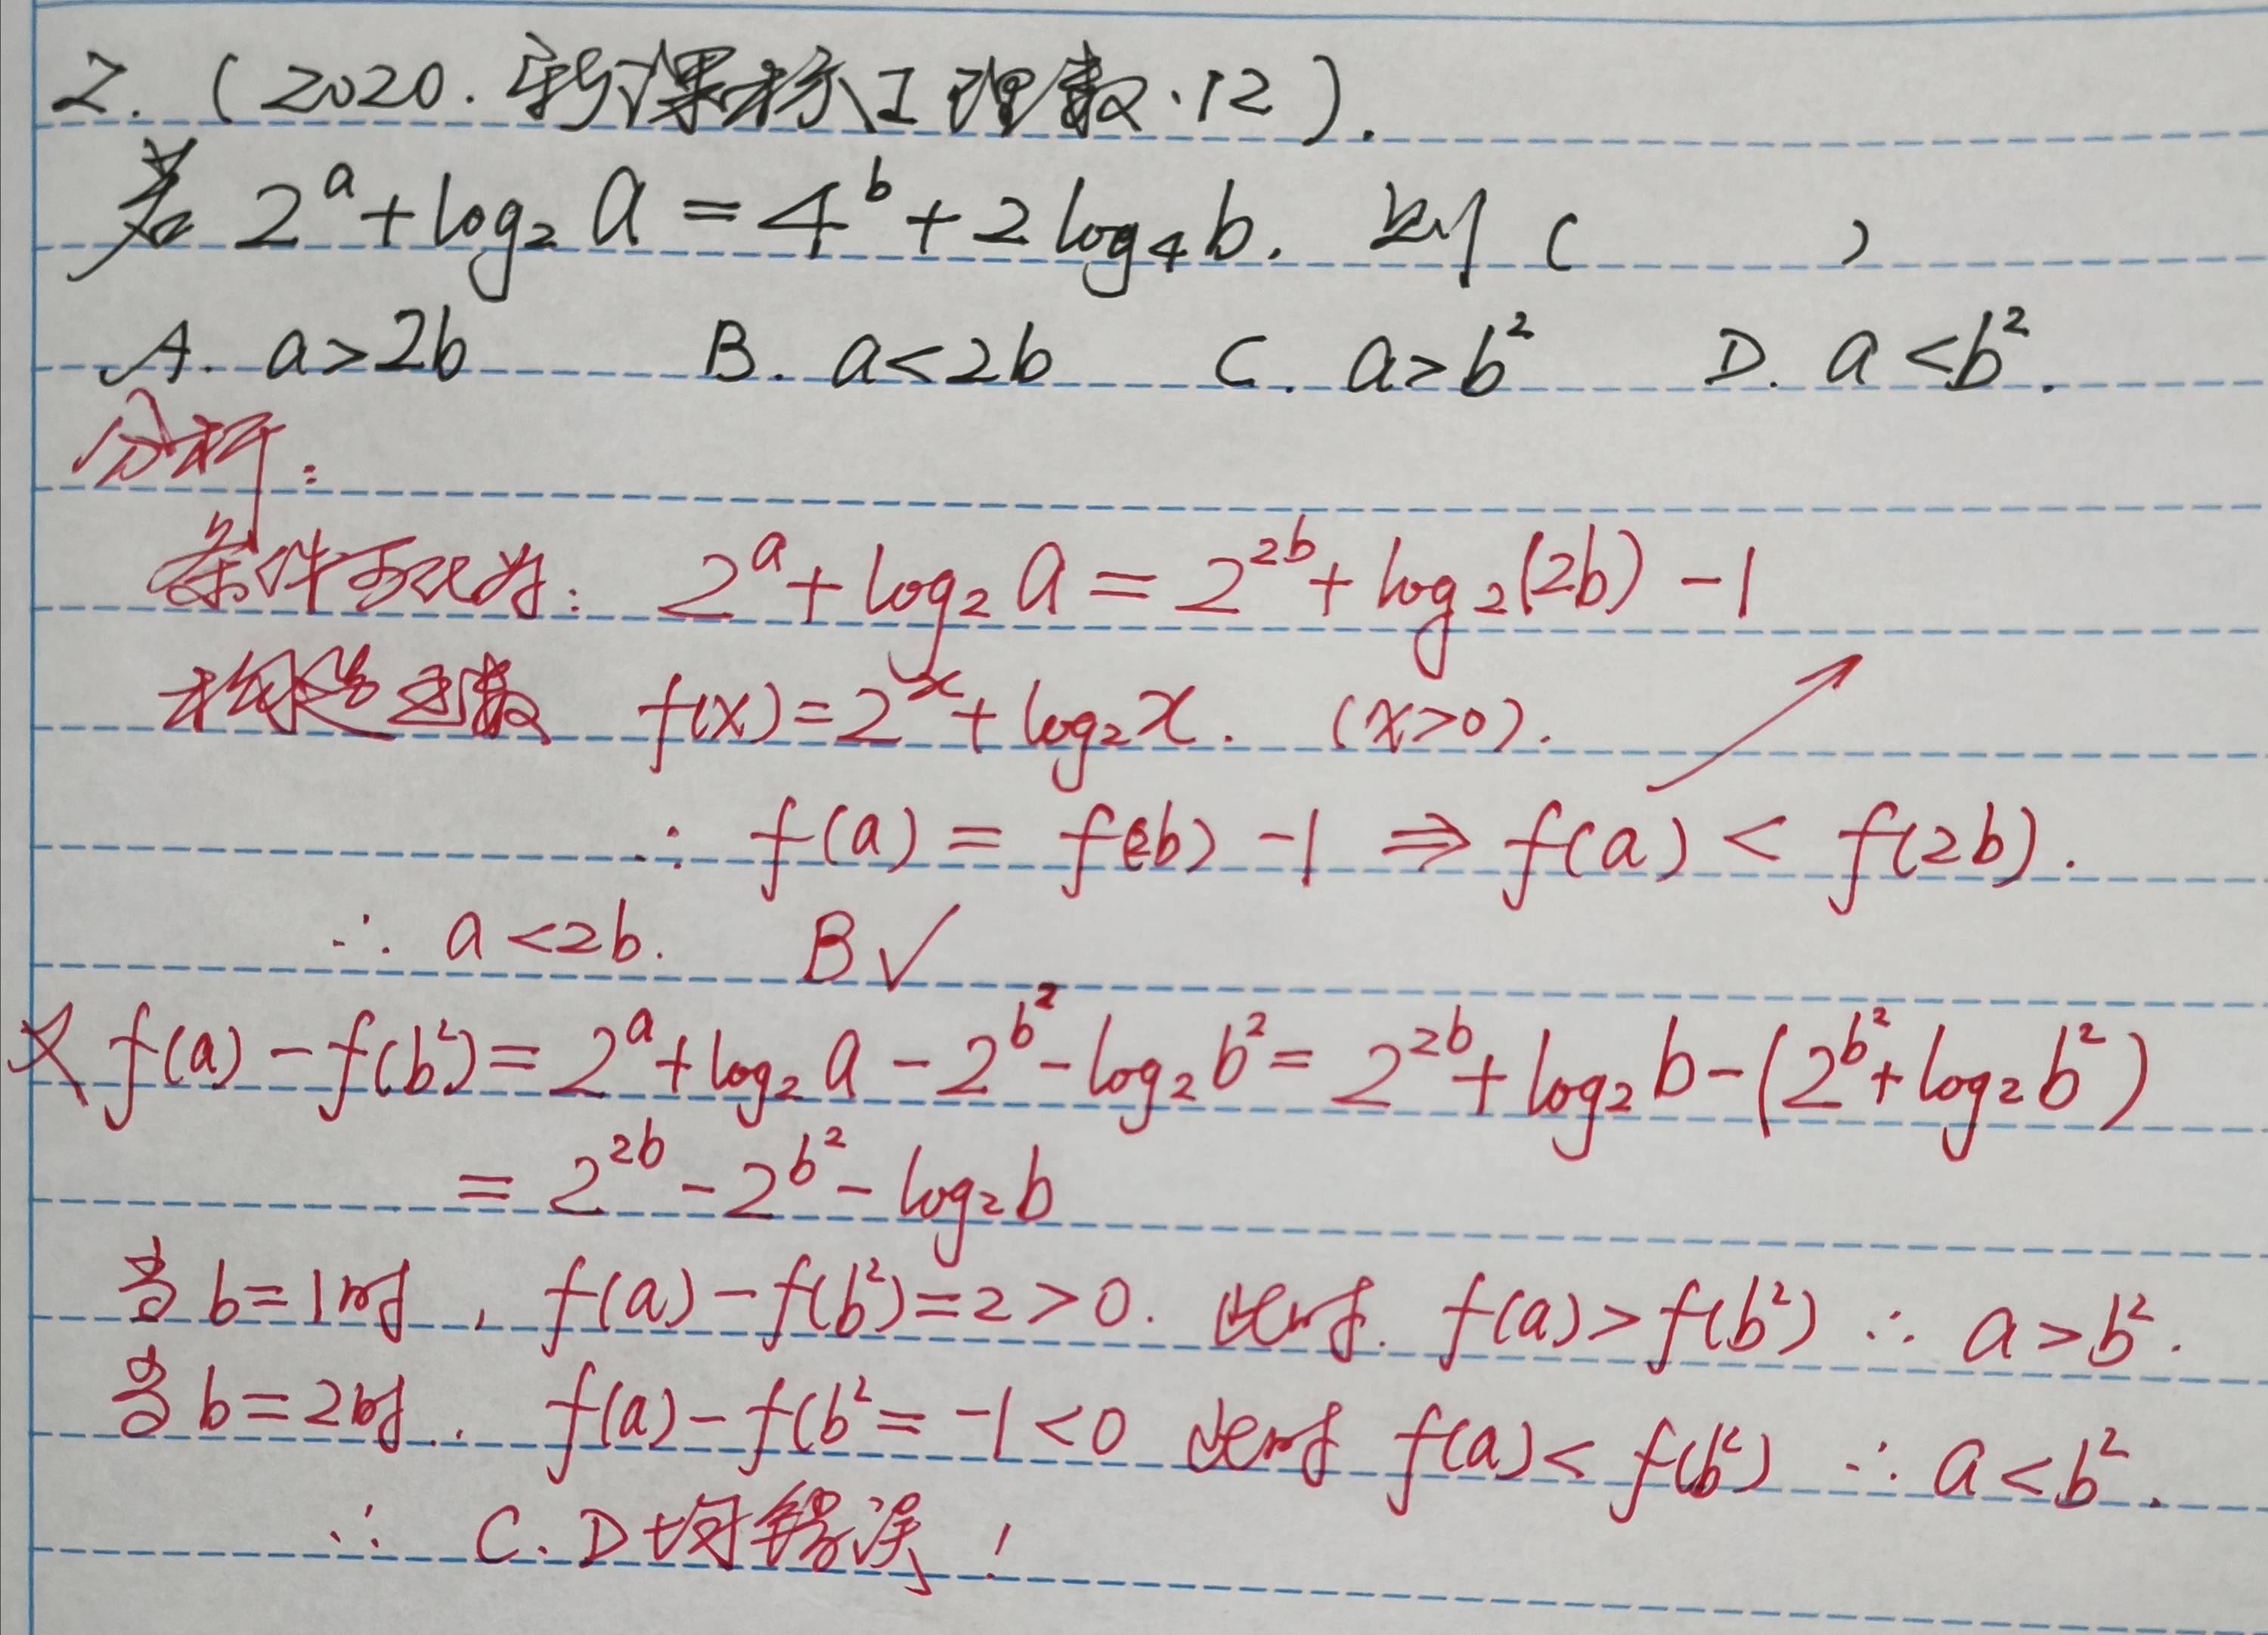 2.(2020.新课标I理数.12).
若 2^a+log₂a=4^b+2log₄b. 则( )
A. a>2b B. a<2b C. a>b² D. a<b².
分析:
条件可化为: 2^a+log₂a=2^{2b}+log₂(2b)-1
构造函数 f(x)=2^x+log₂x. (x>0).
∴ f(a)=f(2b)-1⇒f(a)<f(2b).
∴ a<2b. B✓
又 f(a)-f(b²)=2^a+log₂a-2^{b²}-log₂b²=2^{2b}+log₂b-(2^{b²}+log₂b²)
=2^{2b}-2^{b²}-log₂b
当b=1时, f(a)-f(b²)=2>0. 此时. f(a)>f(b²) ∴ a>b².
当b=2时.. f(a)-f(b²=-1<0 此时 f(a)<f(b²) ∴ a<b².
∴ C.D均错误!